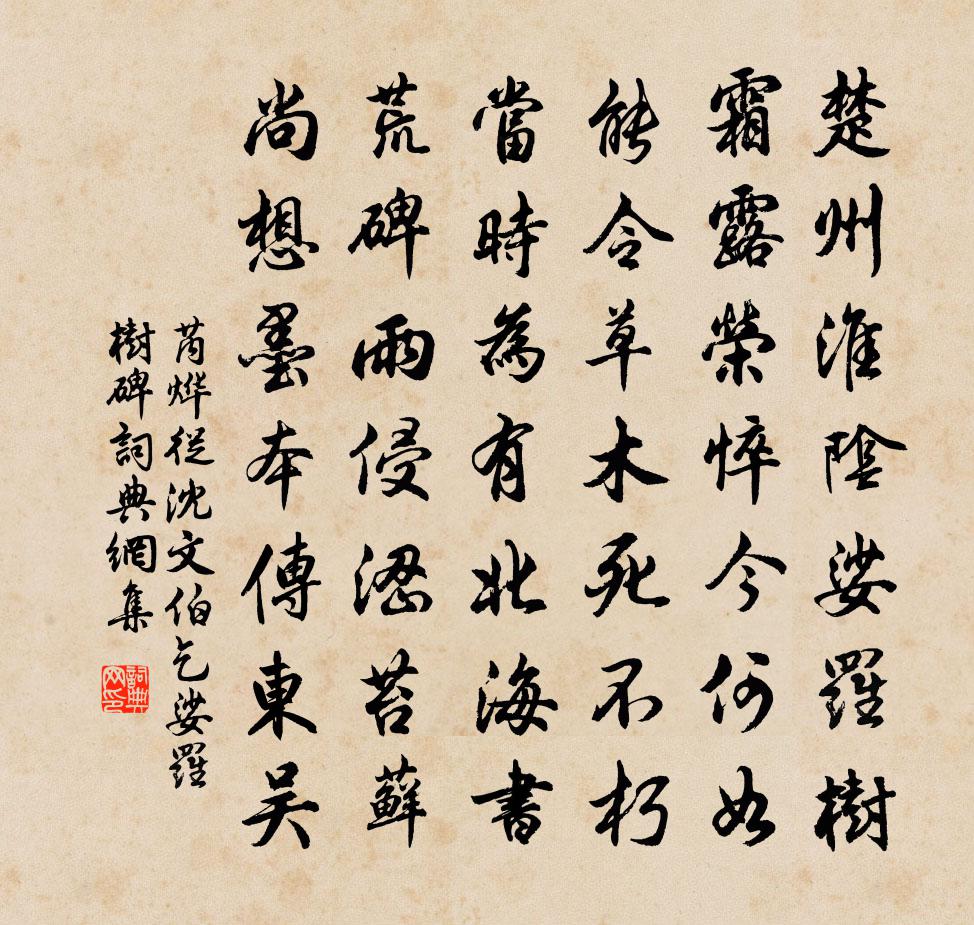 楚州淮陰娑羅樹
霜露榮悴今何如
能令草木死不朽
當時為有北海書
荒碑雨侵澀苔蘚
尚想墨本傳東吴
芮烨從沈文伯乞娑羅
樹碑詞典網集
詞典网印